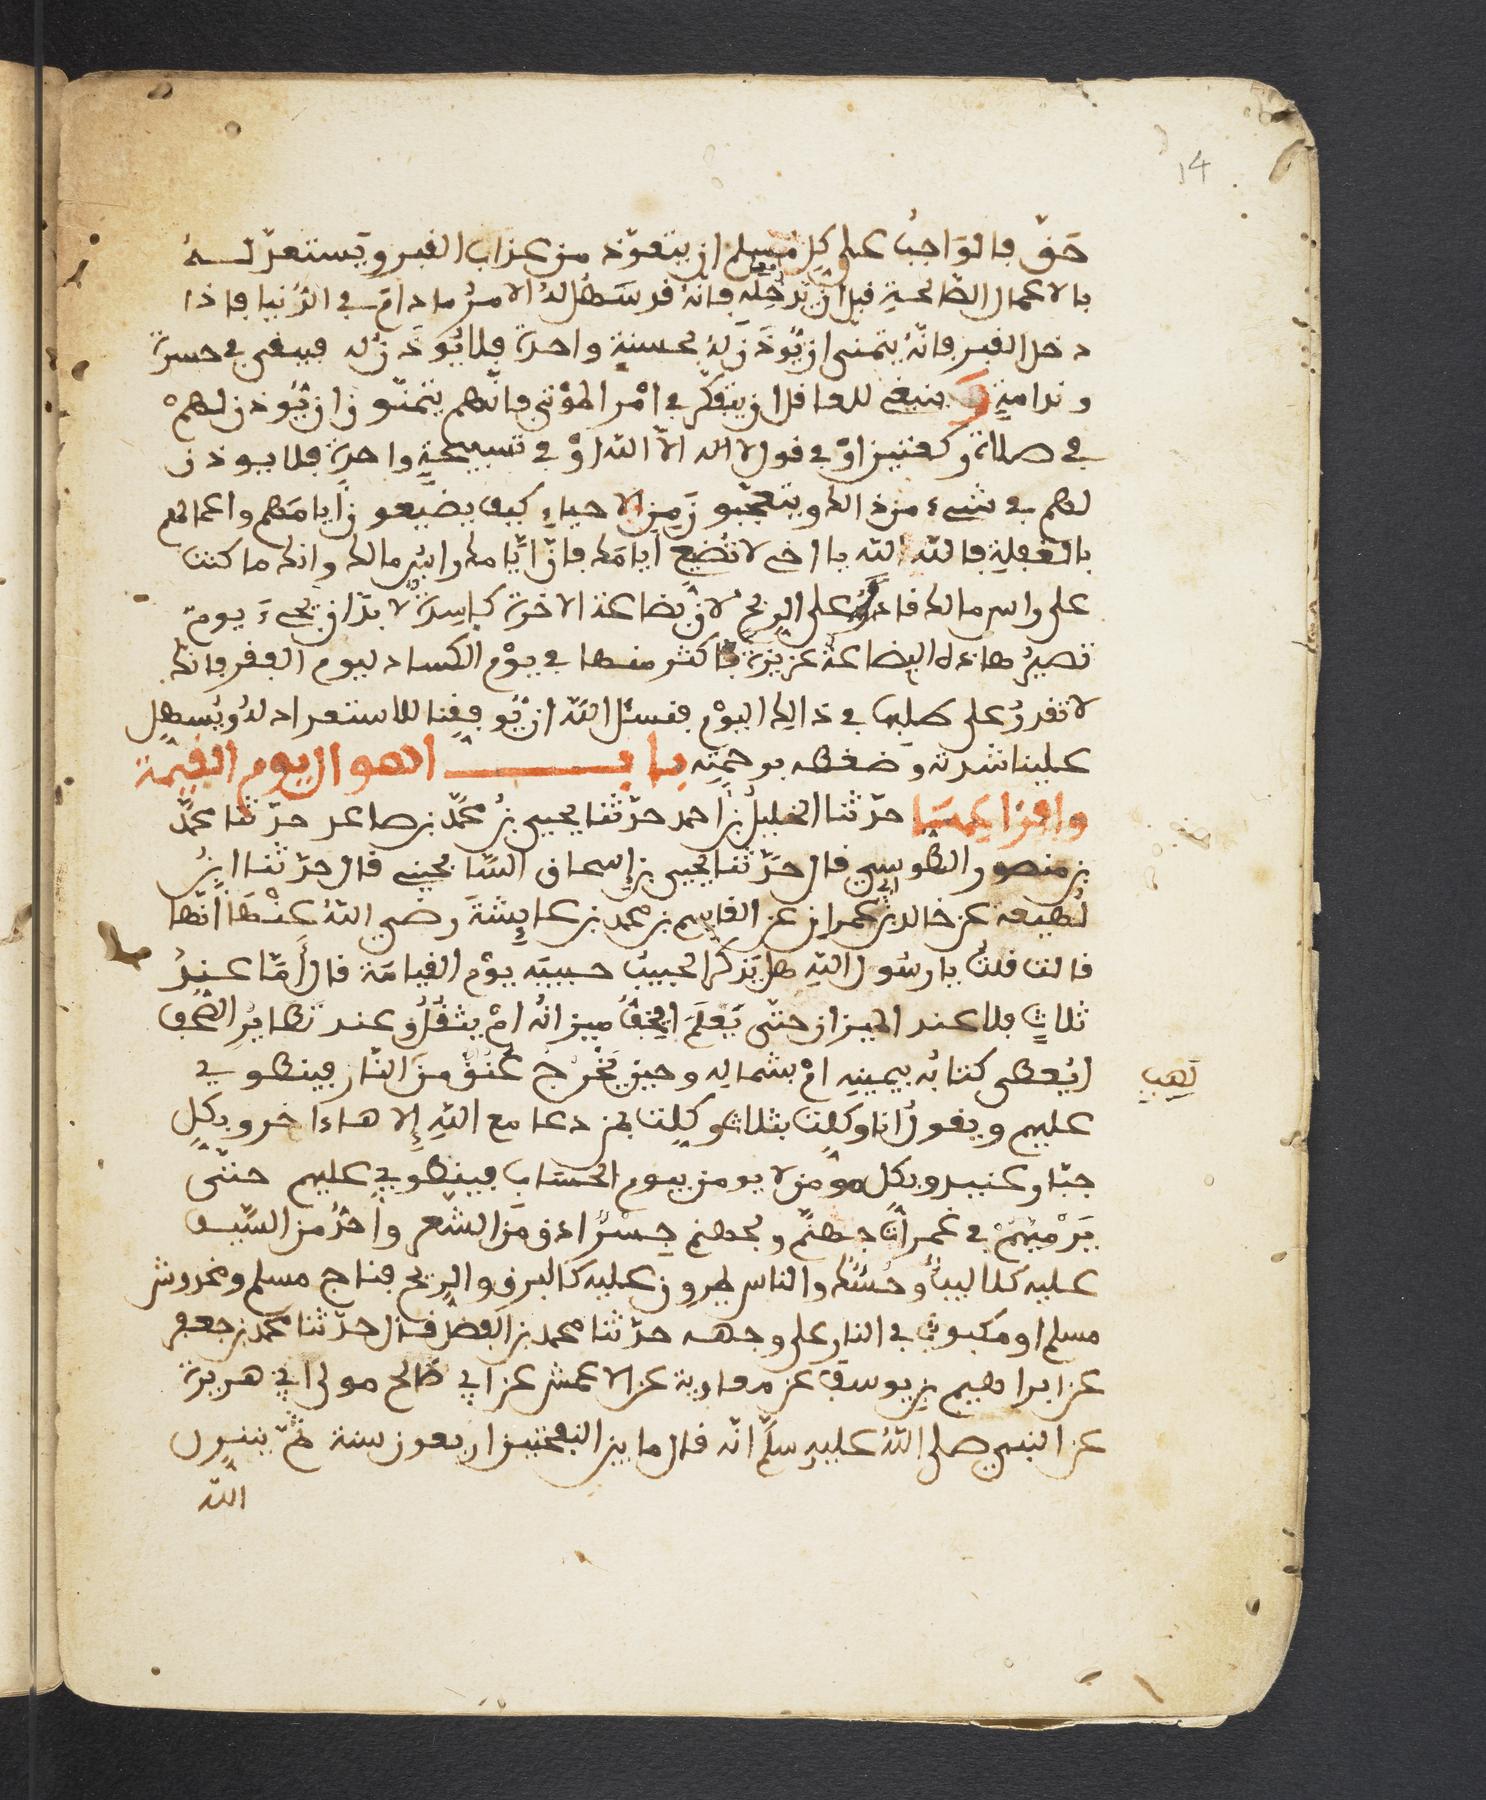 14
حق فالواجب على كل مسلم ان يتعوّذ من عذاب القبر ويستعدّ لـه
بالاعمال الصّالحة قبل ان تدخله فانه قد سهل له الامر ما دام في الدنيا فاذا
دخل القبر فانه يتمنى ان يؤذن له بحسنة واحدة فلا يوذن له فيبقى في حسرة
وندامة وينبغي للعاقل ان يتفكّر في امر الموتى فانّهم يتمنّون ان يوذن لهم
في صلاة ركعتين او في قول لا اله الا الله او في تسبيحة واحدة فلا يوذن
لهم في شيء من ذالك ويتعجّبون من الاحياء كيف يضيّعون ايامهم واعمالهم
بالغفلة فالله الله يا اخي لا تضيع ايامك فان ايّامك راس مالك وانك ما كنت
على راس مالك قادر على الربح لان بضاعة الاخرة كاسدة لا بدّ ان يجيء يوم
تصير هاذه البضاعة عزيزة فاكثر منها في يوم الكساد ليوم الفقر فانك
لا تقدر على طلبها في ذالك اليوم فنسئل الله ان يوفقنا للاستعداد له ويسهل
علينا شدته وضغطه برحمته بـاب اهوال يوم القيمة
وافزاعها حدّثنا الخليل بن احمد حدّثنا يحيى بن محمّد بن صاعد حدّثنا محمّد
بن منصور الطوسي قال حدّثنا يحيى بن إسحاق السّالحيني قال حدّثنا ابن
لهيعة عن خالد بن ابي عمران عن القاسم بن محمد بن عايشة رضي الله عنها انّها
قالت قلت يا رسول الله هل يذكر الحبيب حبيبه يوم القيامة قال أمّا عند
ثلاث فلا عند الميزان حتّى يعلم ايخف ميزانه ام يثقل وعند تطاير الصّحف
ايعطى كتابه بيمينه ام بشماله وحين يخرج عنق من النّار فينطوي
لهب
عليهم ويقول انا وكلت بثلاث وكلت بمن دعا مع الله إلاها ءاخر وبكل
جبّار عنيد وبكل مومن لا يومن بيوم الحساب فينطوي عليهم حتّى
يرميهم في غمرات جهنّم ولجهنم جسر ادق من الشّعر واحدّ من السّيف
عليه كلاليب وحسك والناس يمرون عليه كالبرق والريح فناج مسلم ومخدوش
مسلم او مكبوب في النار على وجهه حدّثنا محمد بن الفضل قال حدّثنا محمّد بن جعفر
عن ابراهيم بن يوسف عن معاوية عن الاعمش عن ابي صالح مولى ابي هريرة
عن النبي صلى الله عليه سلّم انّه قال ما بين النفختين اربعون سنة ثمّ ينزل
الله